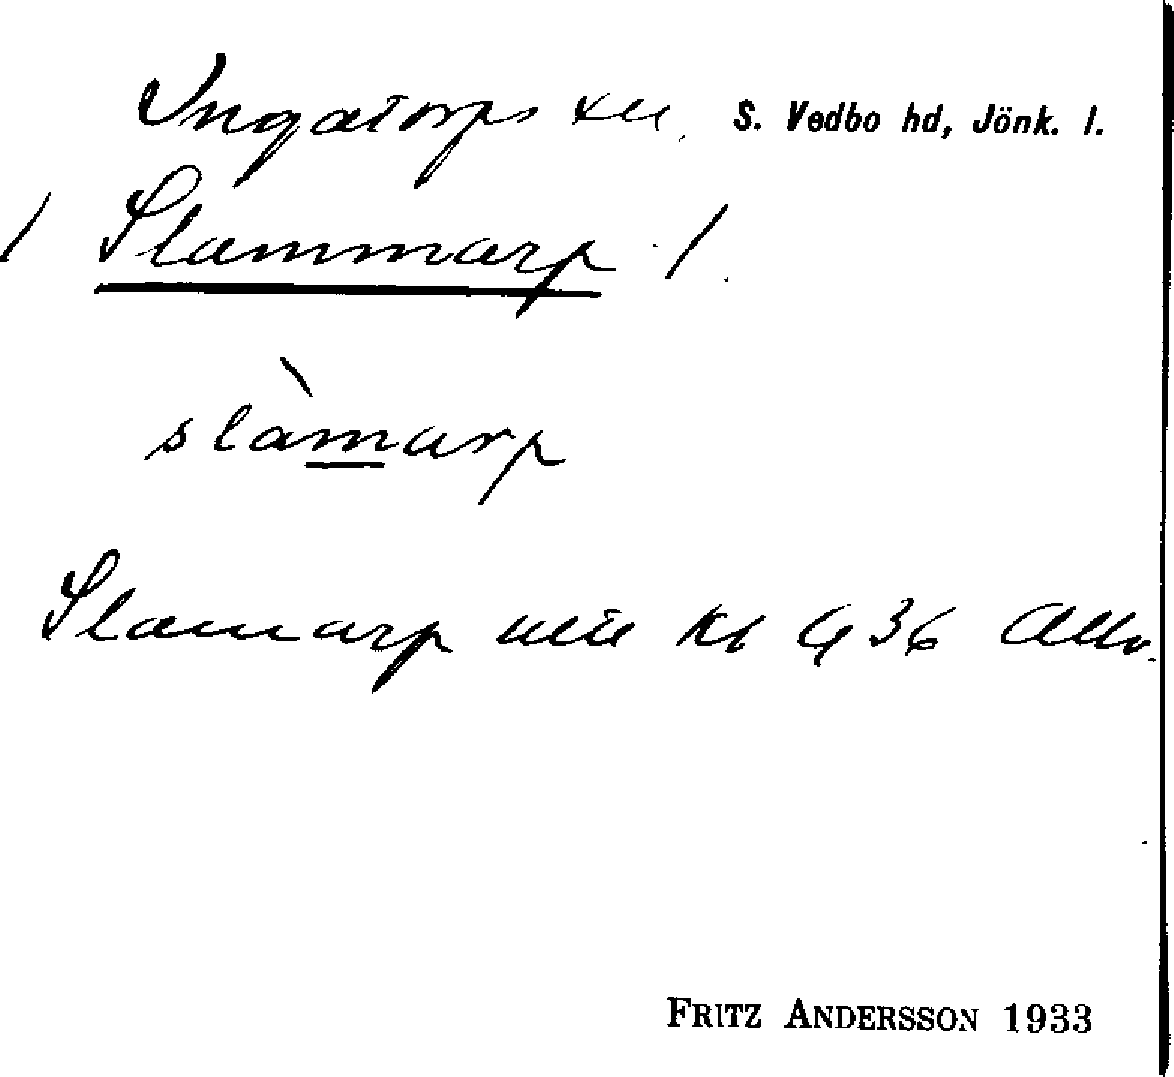 Ingatorps sn. S. Vedbo hd, Jönk. l.
/ Slammarp /
slàmarp
Slamarp G 36
FRITZ ANDERSSON 1933